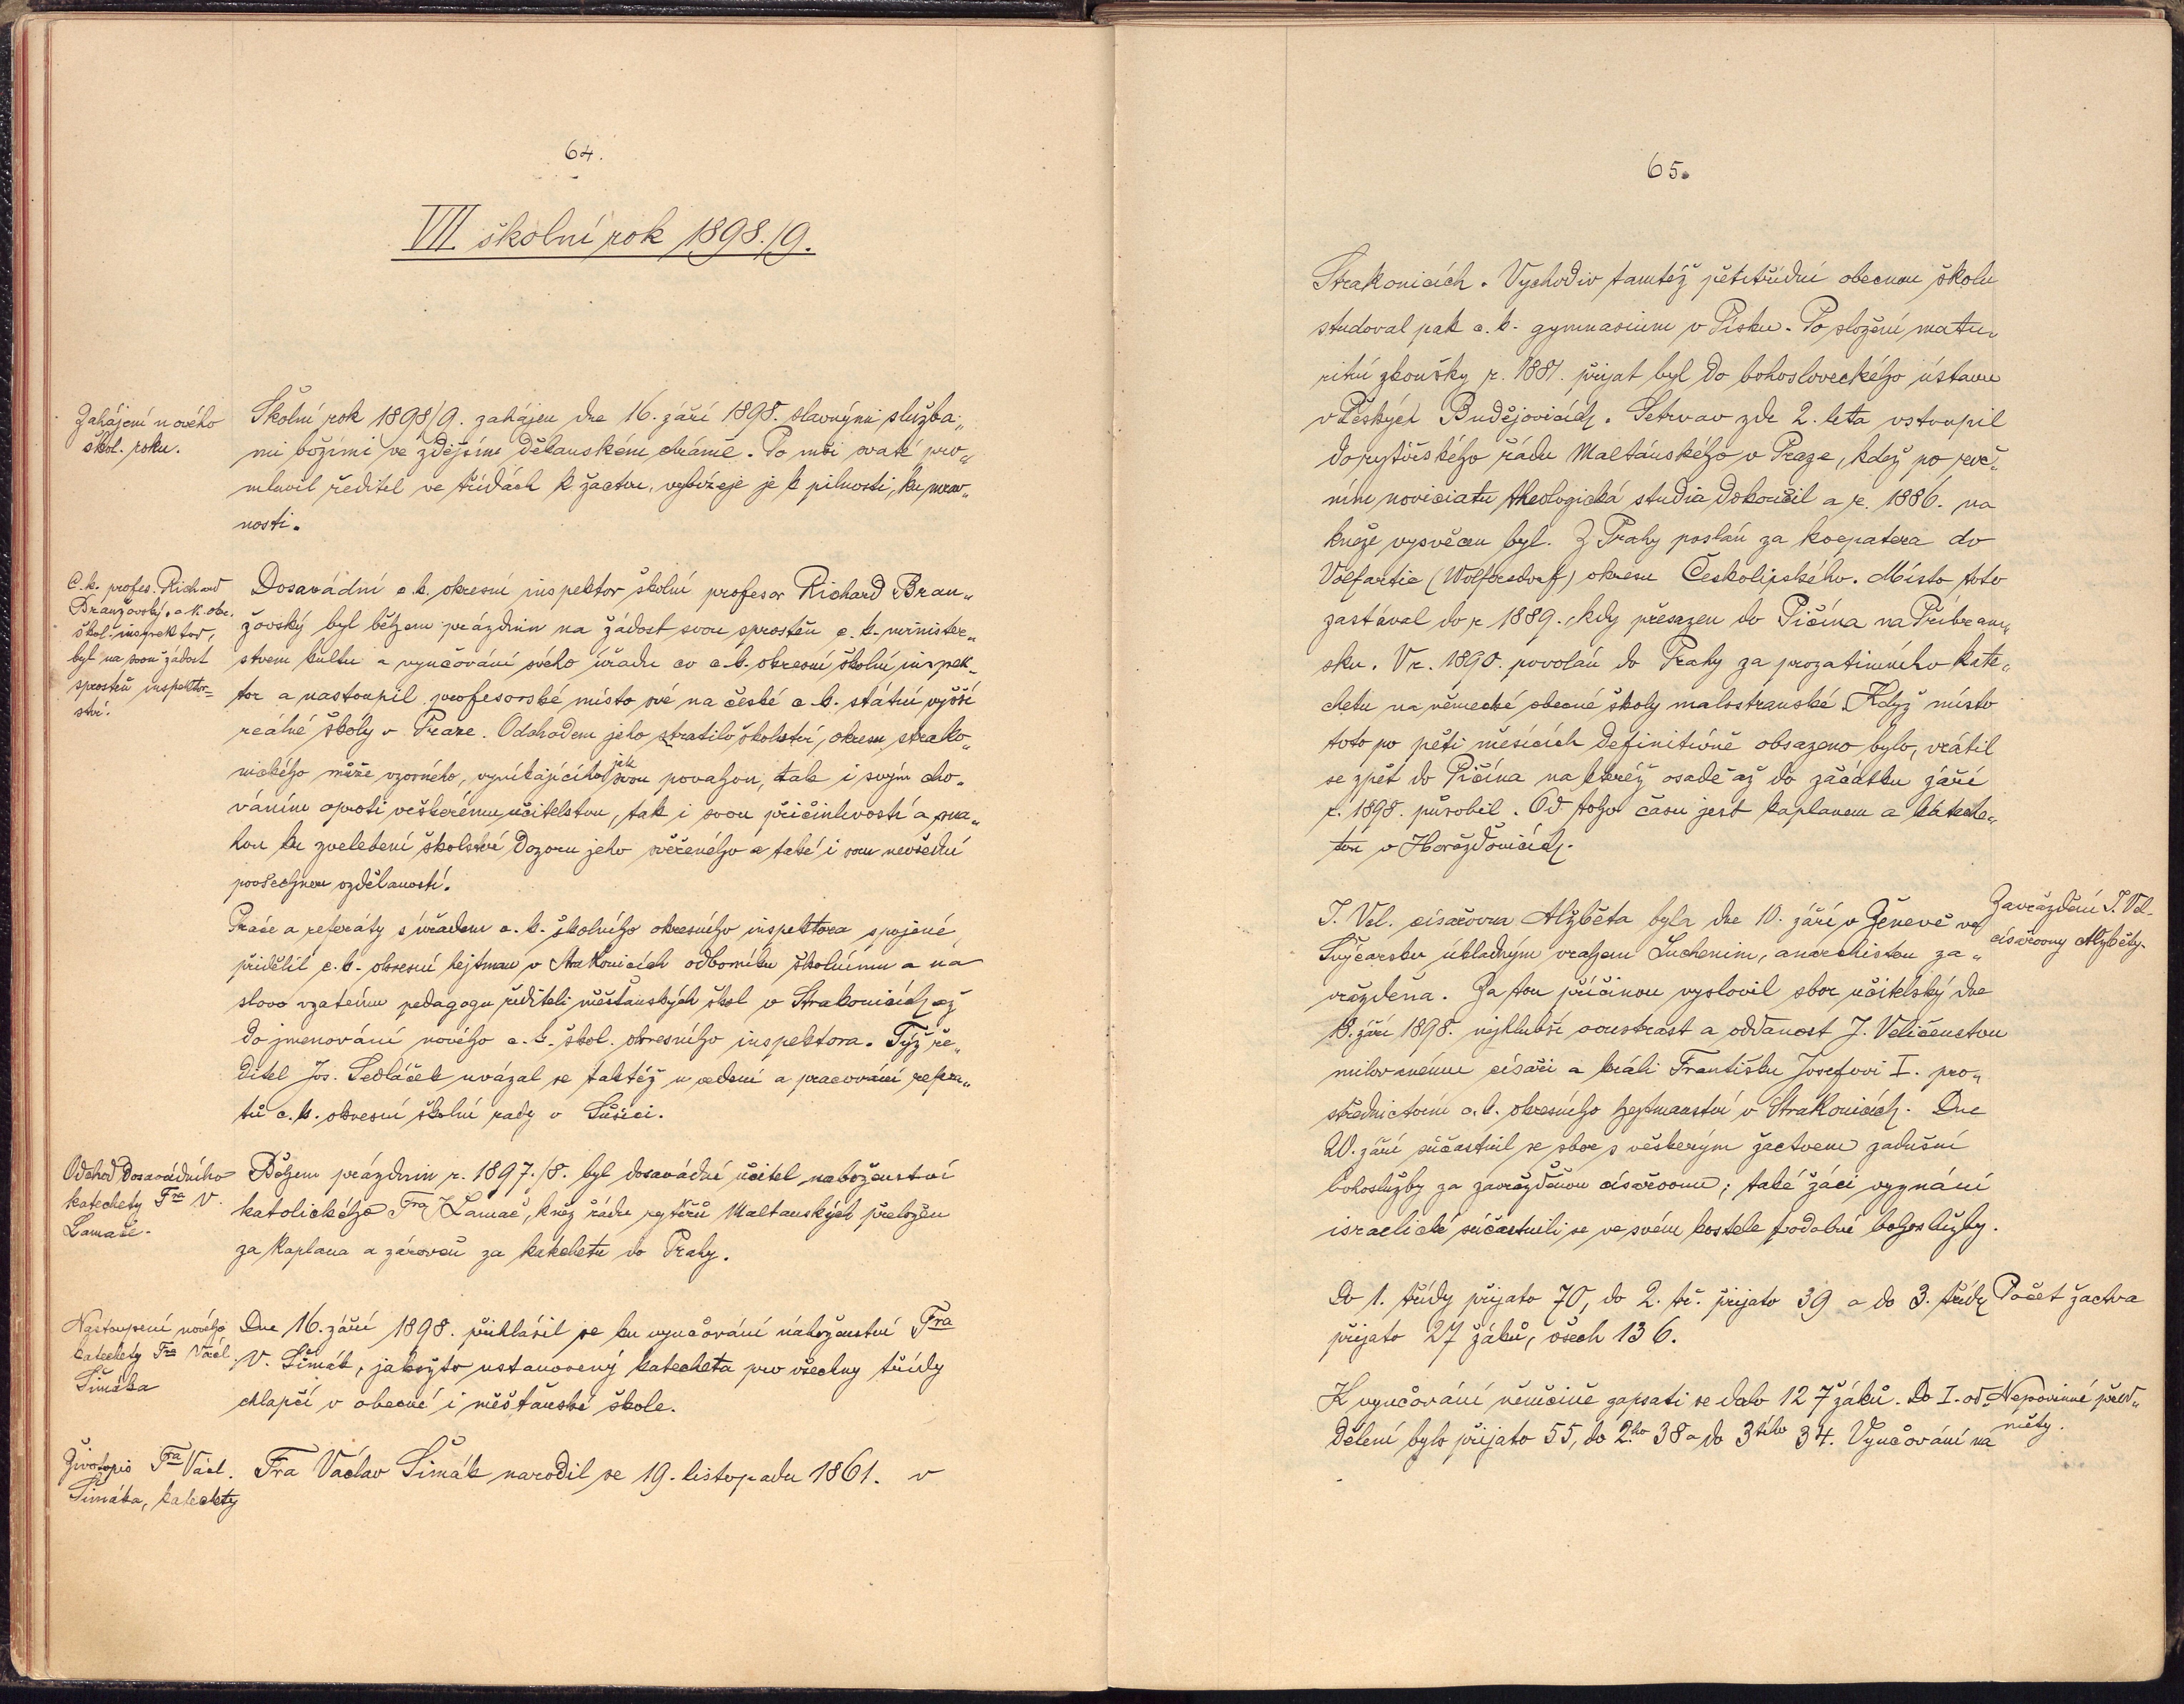 64.
VII. školní rok 1898./9.
Zahájení nového
škol. roku.
Školní rok 1898/9. zahájen dne 16. září 1898. slavnými služba„
mi božími ve zdejším děkanském chrámě. Po mši svaté pro„
mluvil ředitel ve třídách k žactvu, vybízeje je k pilnosti, ku mrav„
nosti.
C. k. profes. Richard
Branžovský, c. k. okr.
škol. inspektor,
byl na svou žádost
sproštěn inspektor=
ství.
Dosavádní c. k. okresní inspektor školní profesor Richard Bran„
žovský byl během prázdnin na žádost svou sproštěn c. k. minister„
stvem kultu a vyučování svého úřadu co c. k. okresní školní inspek„
tor a nastoupil professorské místo své na české c. k. státní vyšší
reálné školy v Praze. Odchodem jeho stratilo školství okresu strako„
nického muže vzorného, vynikajícího jak svou povahou, tak i svým cho„
váním oproti veškerému učitelstvu, tak i svou přičinlivostí a sna„
hou ku zvelebení školství dozoru jeho svěřeného a také i svou nevšední
povšechnou vzdělaností.
Práce a referáty s úřadem c. k. školního okresního inspektora spojené
přidělil c. k. okresní hejtman v Strakonicích odborníku školnímu a na
slovo vzatému pedagogu řediteli měšťanských škol v Strakonicích až
do jmenování nového c. k. škol. okresního inspektora. Týž ře„
ditel Jos. Sedláček uvázal se taktéž u vedení a pracování refera„
tů c. k. okresní školní rady v Sušici.
Odchod dosavádního
katechety Fra V.
Lamače.
Během prázdnin r. 1897./8. byl dosavádní učitel náboženství
katolického Fra J Lamač, kněz řádu rytířů Maltanských přeložen
za kaplana a zároveň za katechetu do Prahy.
Nastoupení nového
katechety Fra Václ.
Šimáka
Dne 16. září 1898. přihlásil se ku vyučování náboženství Fra
V. Šimák, jakožto ustanovený katecheta pro všechny třídy
chlapčí v obecné i měšťanské škole.
Životopis Fra Václ.
Šimáka, katechety
Fra Václav Šimák narodil se 19. listopadu 1861. v
65.
Strakonicích. Vychodiv tamtéž pětitřídní obecnou školu
studoval pak c. k. gymnasium v Písku. Po složení matu„
ritní zkoušky r. 1881. přijat byl do bohosloveckého ústavu
v Českých Budějovicích. Setrvav zde 2. léta vstoupil
do rytířského řádu Maltánského v Praze, kdež po roč„
ním noviciatu theologická studia dokončil a r. 1886. na
kněze vysvěcen byl. Z Prahy poslán za kooperatera do
Volfartic (Wolfersdorf) okresu Českolipského. Místo toto
zastával do r 1889. kdy přesazen do Pičína na Příbram„
sku. V r. 1890. povolán do Prahy za prozatimního kate„
chetu na německé obecné školy malostranské. Když místo
toto po pěti měsících definitivně obsazeno bylo, vrátil
se zpět do Pičína na kteréž osadě až do začátku září
r. 1898. působil. Od toho času jest kaplanem a kateche„
tou v Horažďovicích.
J. Vel. císařovna Alžběta byla dne 10. září v Ženevě ve
Švýcarsku úkladným vrahem Luchenim, anarchistou za„
vražděna. Za tou příčinou vyslovil sbor učitelský dne
18. září 1898. nejhlubší soustrast a oddanost J. Veličenstvu
milovanému císaři a králi Františku Josefovi I. pro„
střednictvím c. k. okresního hejtmanství v Strakonicích. Dne
20. září súčastnil se sbor s veškerým žactvem zadušní
bohoslužby za zavražděnou císařovnu; také žáci vyznání
israelické súčastnili se ve svém kostele podobné bohoslužby.
Zavraždění J. Vel.
císařovny Alžběty.
Do 1. třídy přijato 70, do 2. tř. přijato 39 a do 3. třídy
přijato 27 žáků, všech 136.
Počet žactva
K vyučování němčině zapsati se dalo 127 žáků. Do I. od„
dělení bylo přijato 55, do 2.ho 38 a do 3tího 34. Vyučování na
Nepovinné před„
měty.